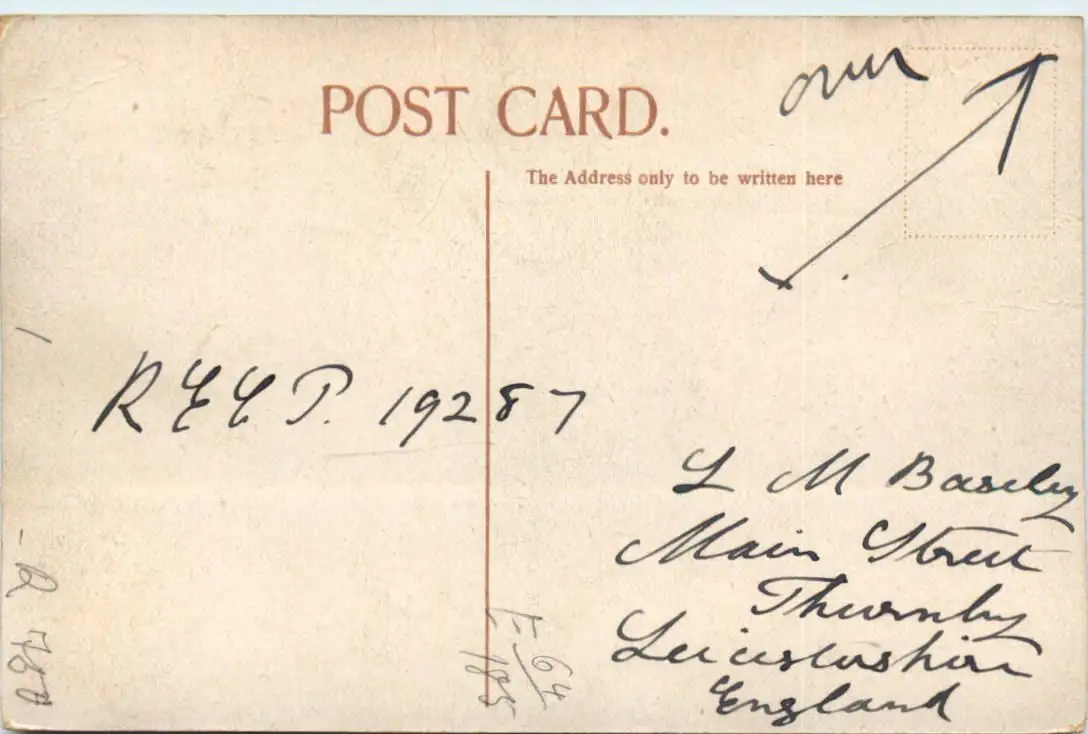 over
POST CARD.
The Address only to be written here
R E E P. 19287
L M Baseley
Main Street
Thurnby
Leicestershire
England
E 64
185